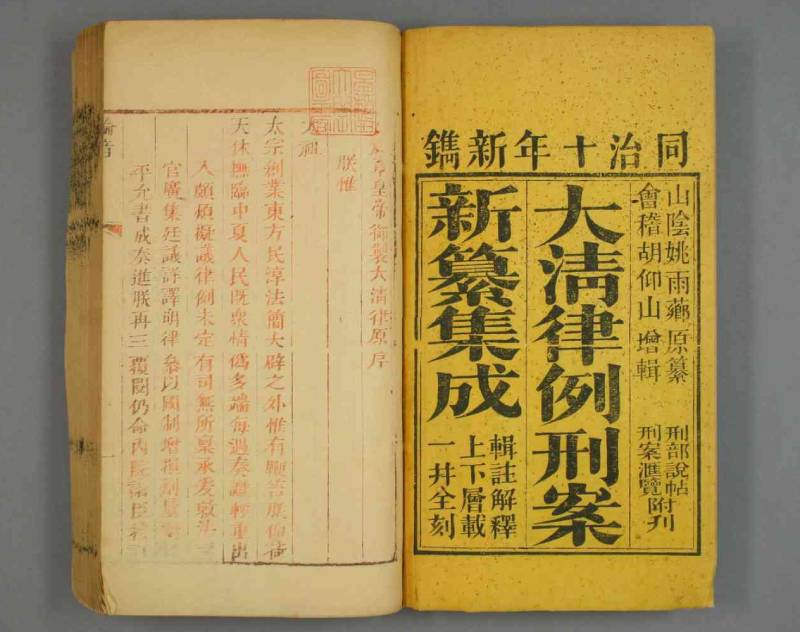 同治十年新鐫
山陰姚雨薌原纂
會稽胡仰山增輯
刑部說帖
刑案滙覽附刊
大清律例刑案
新纂集成
輯註解釋
上下層載
一并全刻
章皇帝御製大清律原序
朕惟
太祖
太宗創業東方民淳法簡大辟之外惟有鞭笞朕仰荷
天休撫臨中夏人民既衆情僞多端每遇奏讞輕重出
入頗煩擬議律例未定有司無所稟承爰敕法
官廣集廷議詳譯明律參以國制增損劑量
平允書成奏進朕再三覆閱仍命內院諸臣